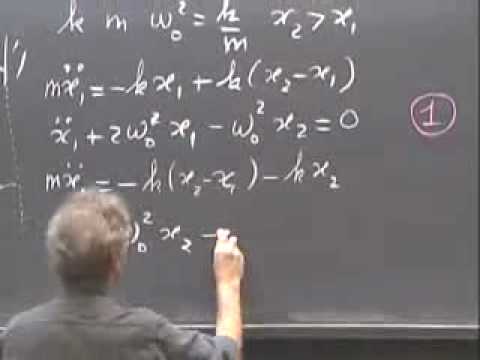 k m ω₀² = k/m x₂ > x₁
mẍ₁ = -kx₁ + k(x₂-x₁)
ẍ₁ + 2ω₀² x₁ - ω₀² x₂ = 0
1
mẍ₁ = -k(x₂-x₁) - kx₂
ω₀² x₂ -